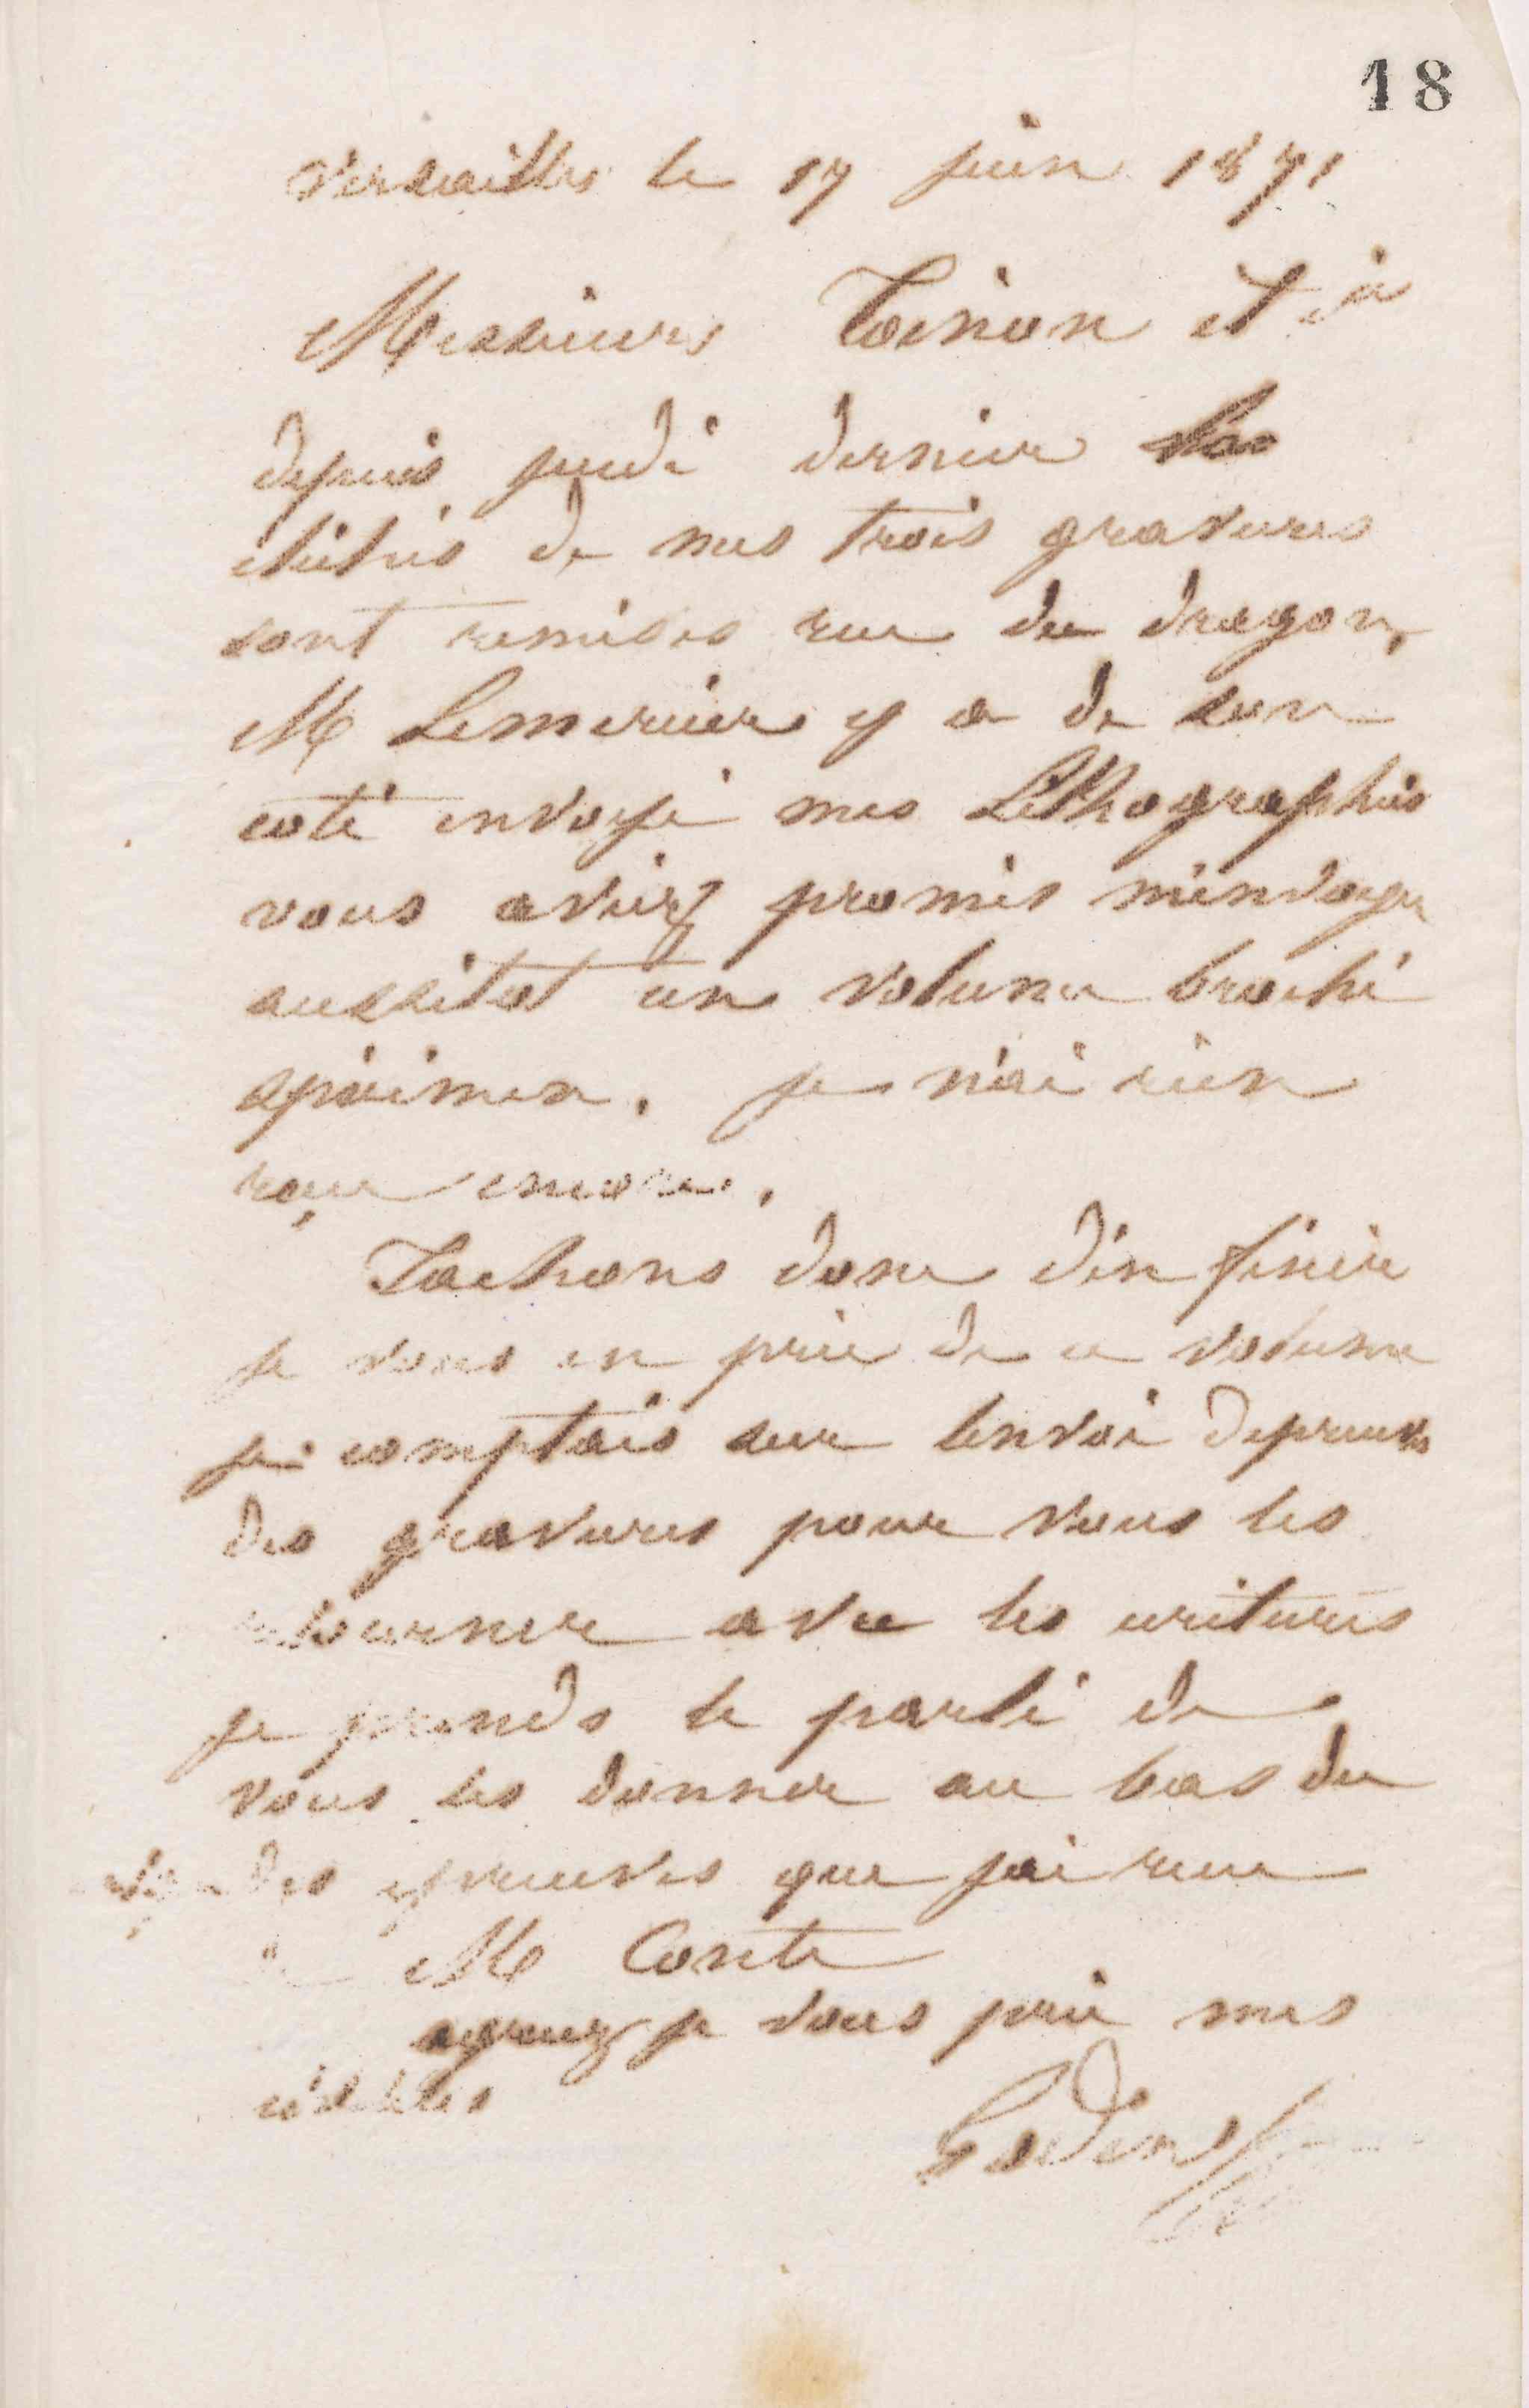 18
Versailles le 17 juin 1871
Messieurs Toinon et Cie
depuis jeudi dernier les
clichés de mes trois gravures
sont remises rue du dragon,
M Lemercier y a de son
coté envoyé mes Lithographies
vous aviez promis m'envoyer
aussitot un volume broché
spécimen. je n'ai rien
reçu encore.
Tachons donc d'en finir
je vous en prie de ce volume
je comptais sur l'envoi d'epreuves
des gravures pour vous les
retourner avec les ecritures
je prends le parti de
vous les donner au bas du
des epreuves que j'ai reçu
de M Conte
agreez je vous prie mes
civilités
Godin